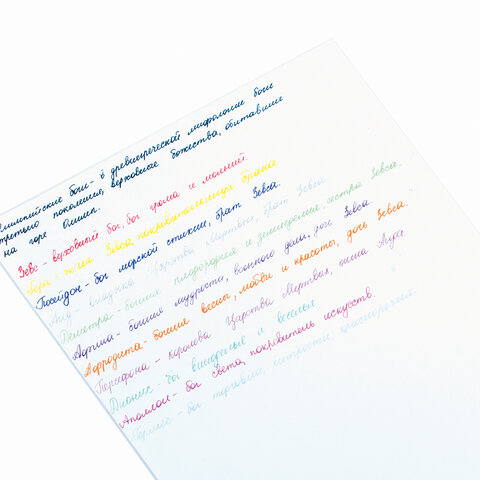 Олимпийские боги - в древнегреческой мифологии боги
третьего поколения, верховные божества, обитавшие
на горе Олимп.
Зевс - верховный бог, бог грома и молний.
Гера - жена Зевса, покровительница брака.
Посейдон - бог морской стихии, брат Зевса.
Аид - владыка Царства Мертвых, брат Зевса.
Деметра - богиня плодородия и земледелия, сестра Зевса.
Афина - богиня мудрости, военного дела, дочь Зевса.
Афродита - богиня весны, любви и красоты, дочь Зевса.
Персефона - королева Царства Мертвых, жена Аида.
Дионис - бог виноделия и веселья.
Аполлон - бог света, покровитель искусств.
Гермес - бог торговли, хитрости,